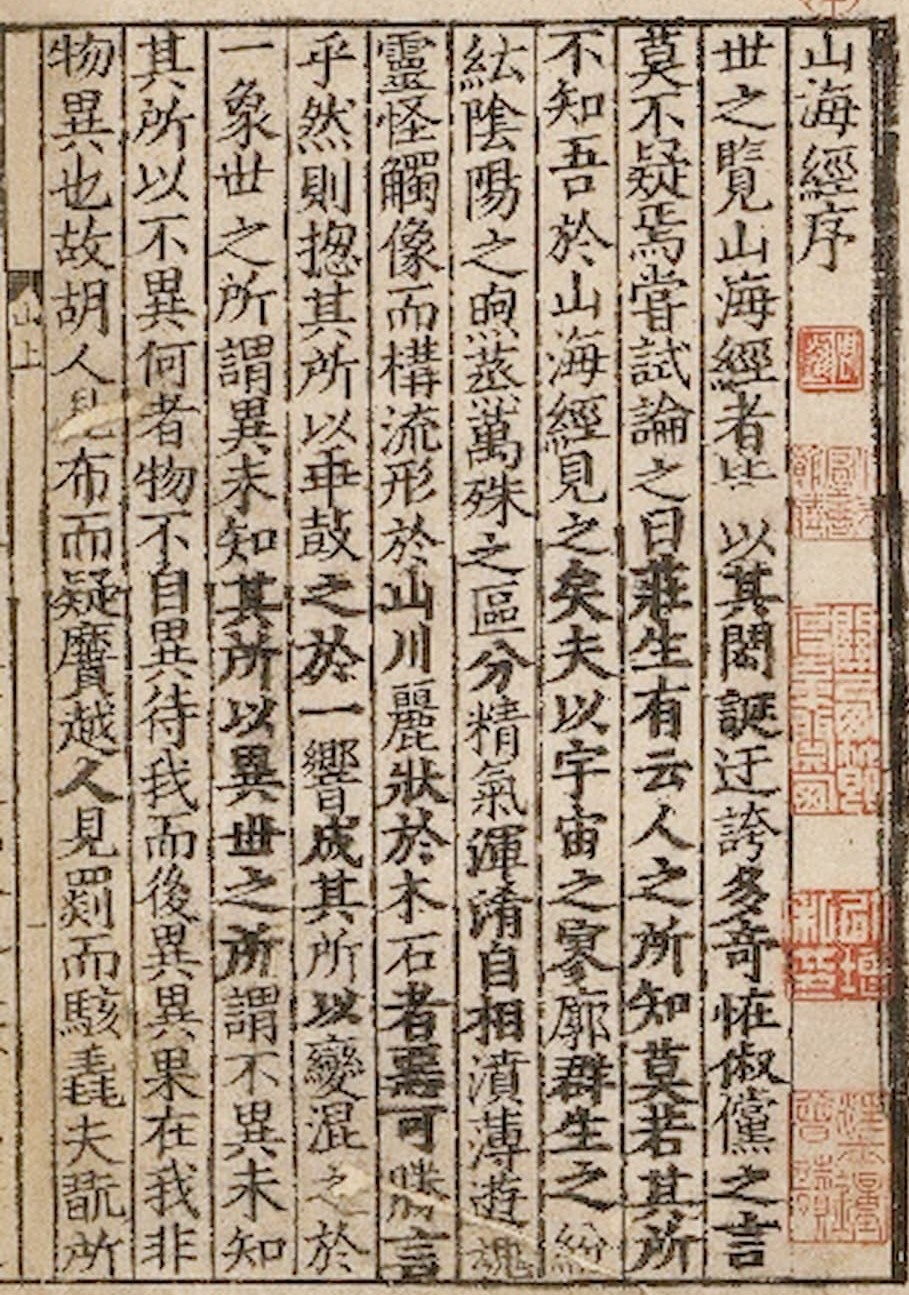 山海經序
世之覽山海經者皆以其閎誕迂誇多奇怪俶儻之言
莫不疑焉嘗試論之曰莊生有云人之所知莫若其所
不知吾於山海經見之矣夫以宇宙之寥廓群生之紛
紜陰陽之煦蒸萬殊之區分精氣渾淆自相濆薄遊魂
靈怪觸像而構流形於山川麗狀於木石者惡可勝言
乎然則揔其所以乖鼓之於一響成其所以變混之於
一象世之所謂異未知其所以異世之所謂不異未知
其所以不異何者物不自異待我而後異異果在我非
物異也故胡人見布而疑黂越人見罽而駭毳夫翫所
山上